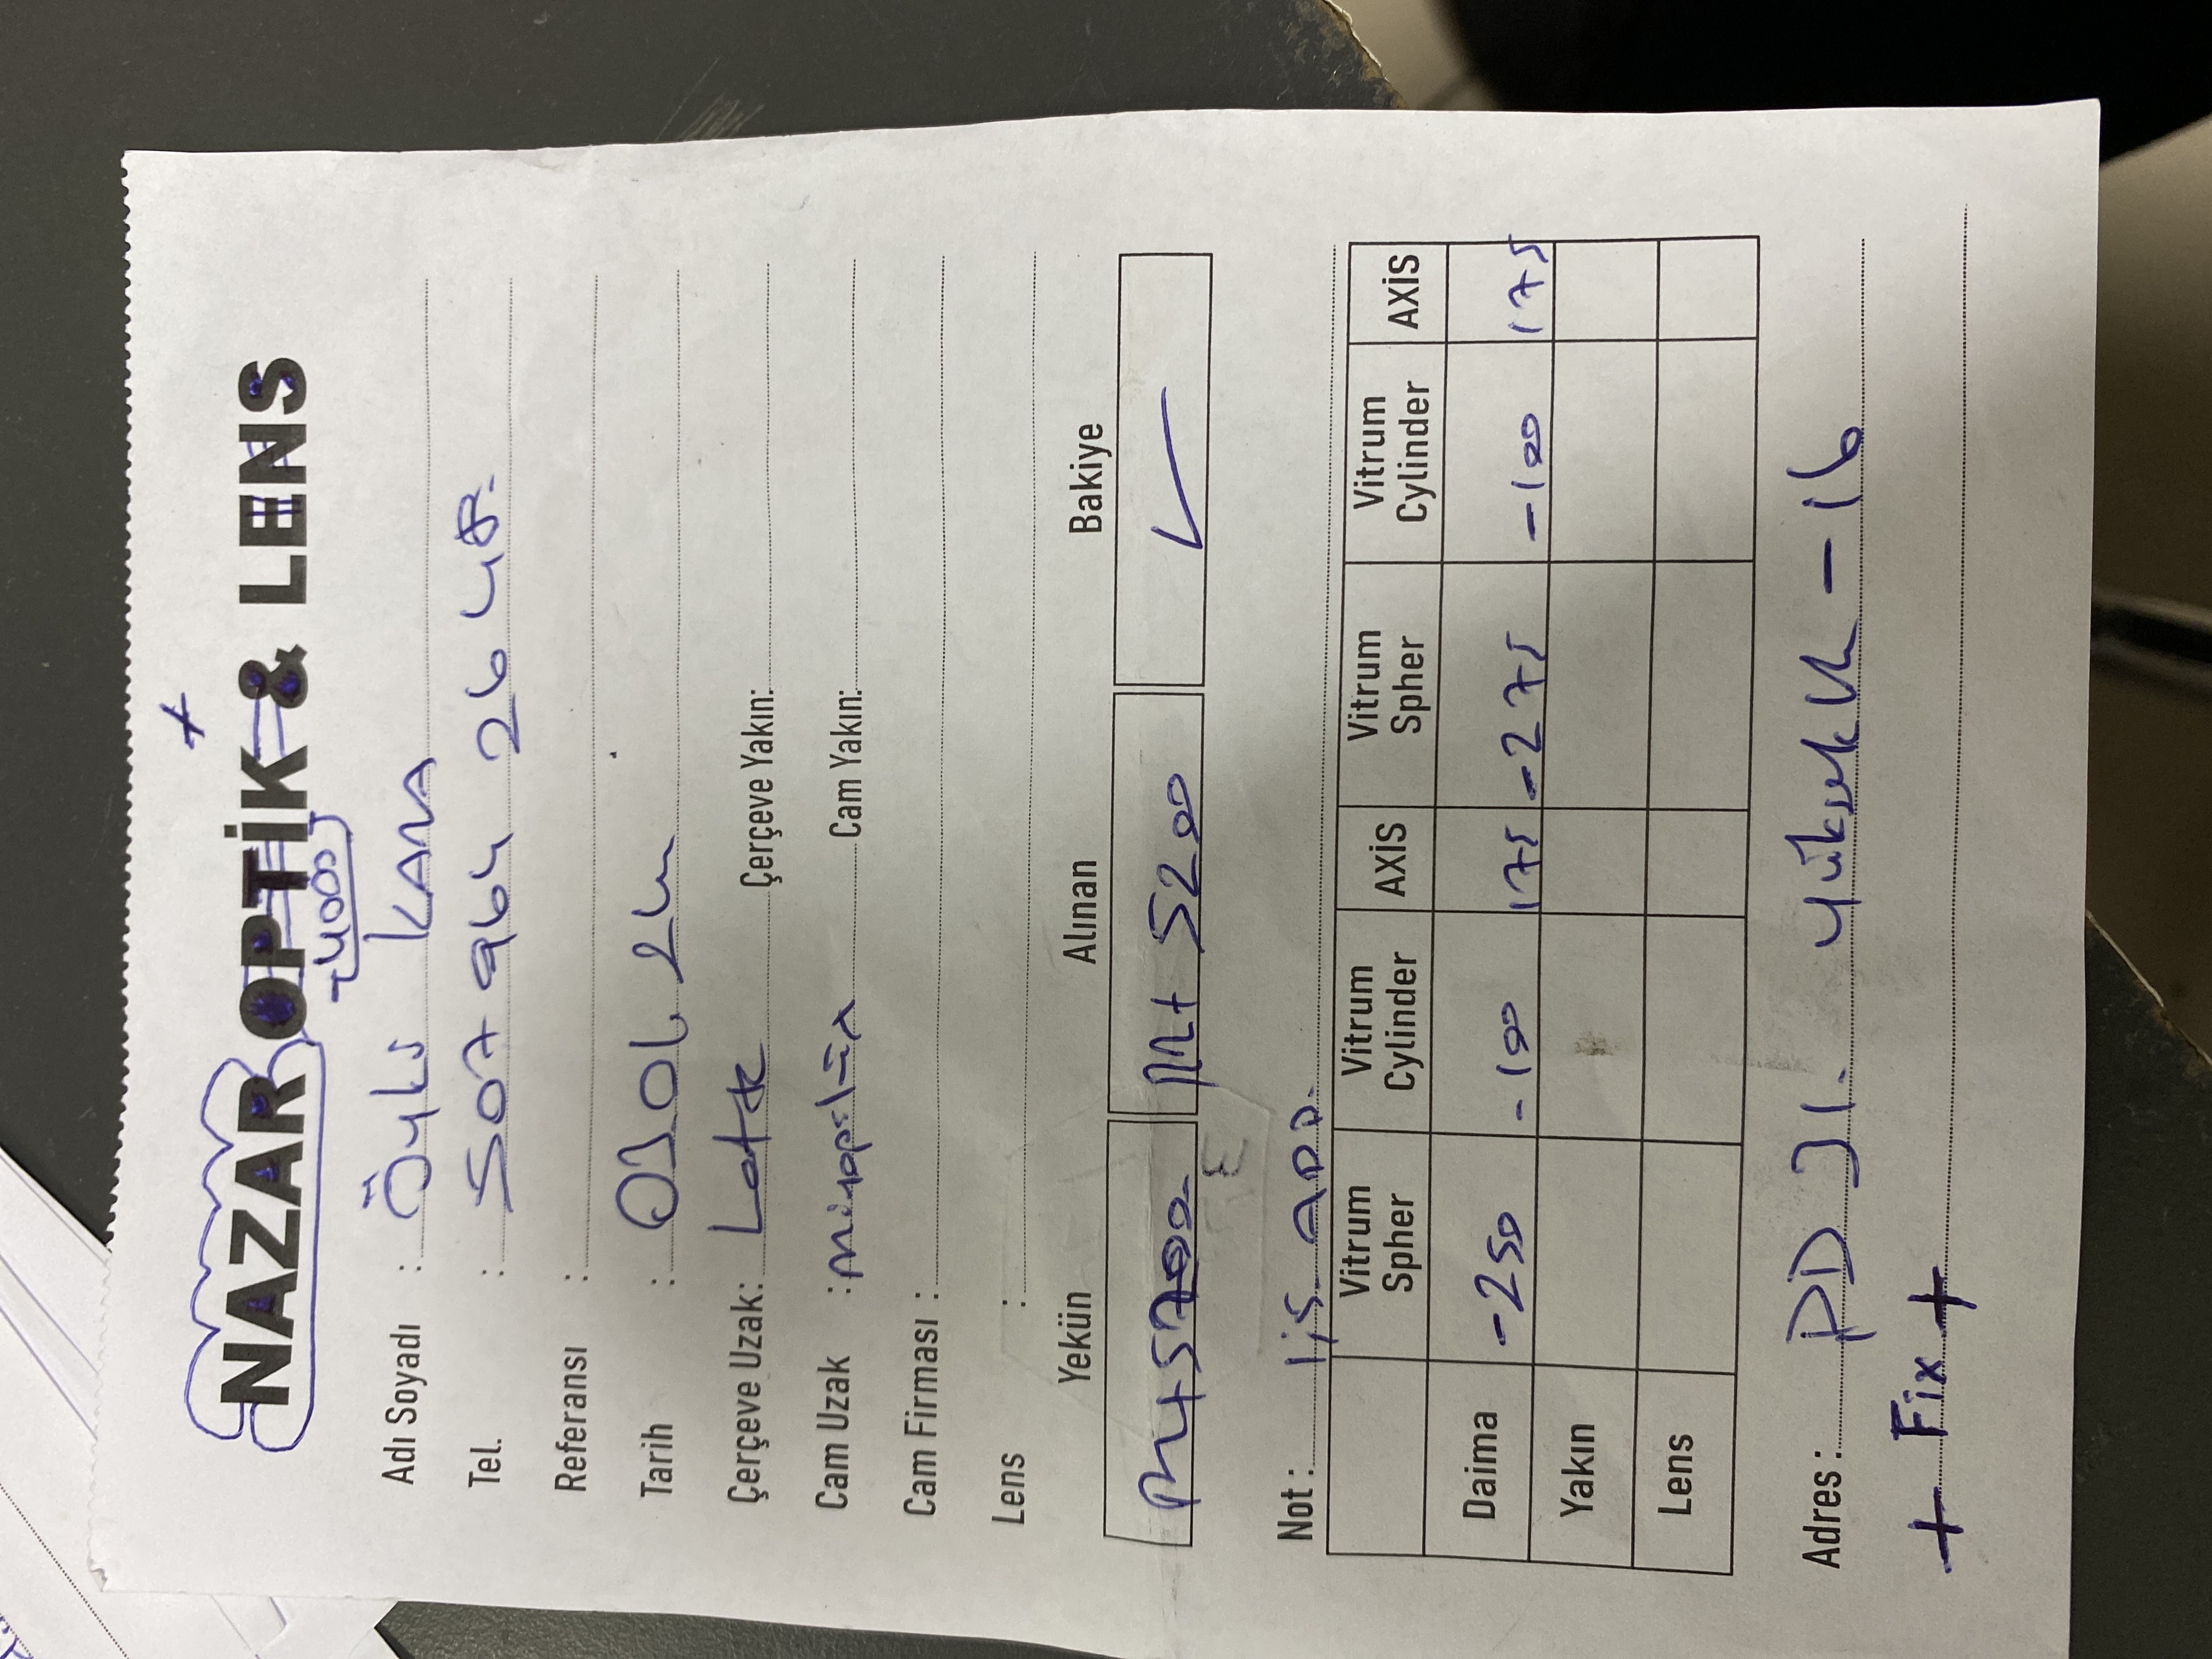 +
NAZAR OPTİK & LENS
4000
Adı Soyadı : KARA
Tel. : 507 964 26 48
Referansı :
Tarih :
Çerçeve Uzak: Çerçeve Yakın:
Cam Uzak : Cam Yakın:
Cam Firması :
Lens :
Yekün Alınan Bakiye
5200
Not : 1,5 ADD.
Vitrum Spher Vitrum Cylinder AXİS Vitrum Spher Vitrum Cylinder AXİS
Daima -250 -100 175 -275 -100 175
Yakın
Lens
Adres : PD 31. -16
+ Fix +